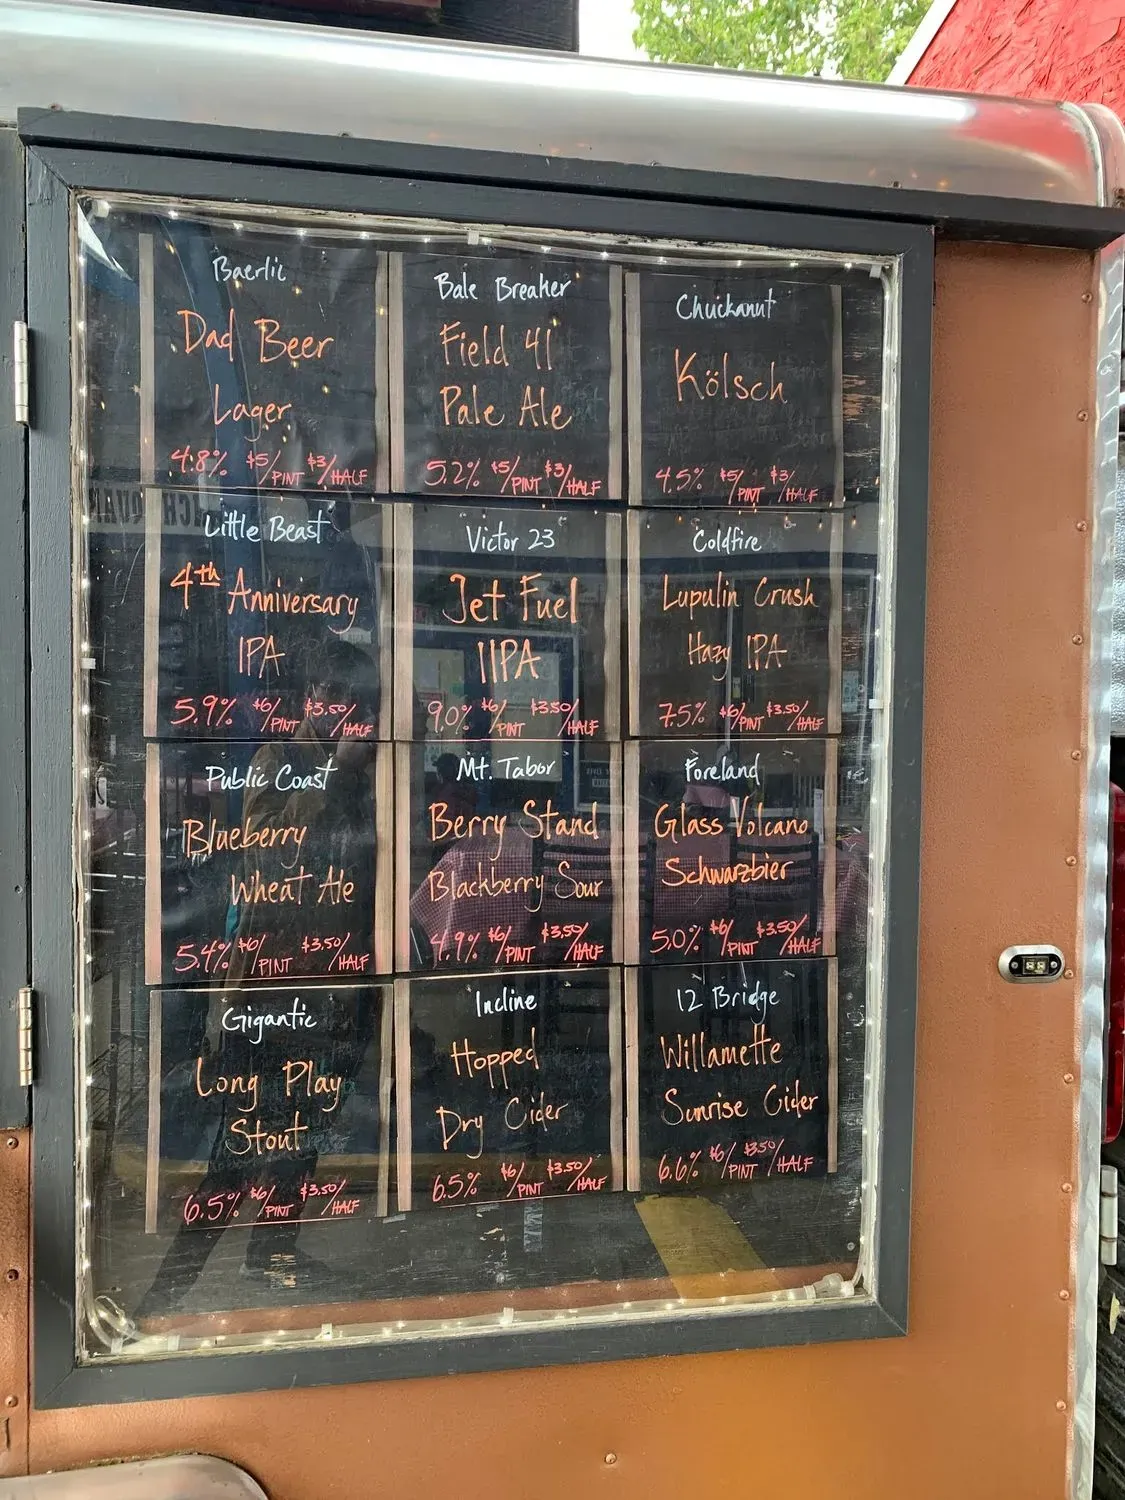 Baerlic
Dad Beer
Lager
4.8% $5/PINT $3/HALF
Bale Breaker
Field 41
Pale Ale
5.2% $5/PINT $3/HALF
Chuckanut
Kölsch
4.5% $5/PINT $3/HALF
Little Beast
4th Anniversary
IPA
5.9% $6/PINT $3.50/HALF
Victor 23
Jet Fuel
IIPA
9.0% $6/PINT $3.50/HALF
Coldfire
Lupulin Crush
Hazy IPA
7.5% $6/PINT $3.50/HALF
Public Coast
Blueberry
Wheat Ale
5.4% $6/PINT $3.50/HALF
Mt. Tabor
Berry Stand
Blackberry Sour
4.9% $6/PINT $3.50/HALF
Foreland
Glass Volcano
Schwarzbier
5.0% $6/PINT $3.50/HALF
Gigantic
Long Play
Stout
6.5% $6/PINT $3.50/HALF
Incline
Hopped
Dry Cider
6.5% $6/PINT $3.50/HALF
12 Bridge
Willamette
Sunrise Cider
6.6% $6/PINT $3.50/HALF